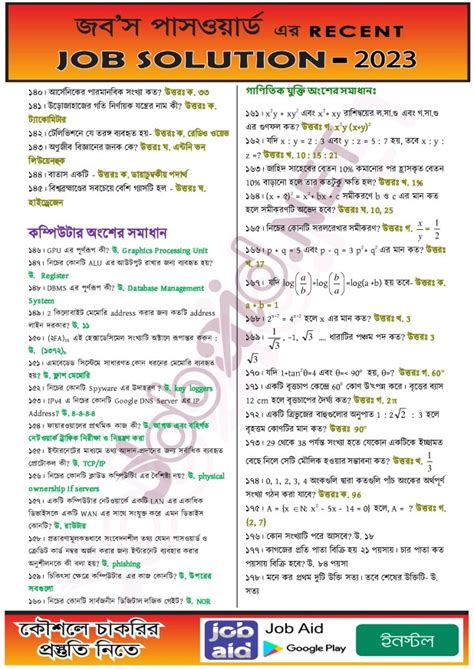 জব’স পাসওয়ার্ড এর RECENT
JOB SOLUTION – 2023
১৪০। আর্সেনিকের পারমানবিক সংখ্যা কত? উত্তরঃ ক. ৩৩
১৪১। উড়োজাহাজের গতি নির্ণায়ক যন্ত্রের নাম কী? উত্তরঃ ক.
ট্যাকোমিটার
১৪২। টেলিভিশনে যে তরঙ্গ ব্যবহৃত হয়- উত্তরঃ ক. রেডিও ওয়েভ
১৪৩। অণুজীব বিজ্ঞানের জনক কে? উত্তরঃ ঘ. এন্টনি ভন
লিউয়েনহুক
১৪৪। বাতাস একটি - উত্তরঃ ক. ডায়াচুম্বকীয় পদার্থ
১৪৫। বিশ্বব্রহ্মাণ্ডের সবচেয়ে বেশি গ্যাসটি হল - উত্তরঃ ঘ.
হাইড্রোজেন
কম্পিউটার অংশের সমাধান
১৪৬। GPU এর পূর্ণরূপ কী? উ. Graphics Processing Unit
১৪৭। নিচের কোনটি ALU এর আউটপুট রাখার জন্য ব্যবহৃত হয়?
উ. Register
১৪৮। DBMS এর পূর্ণরূপ কী? উ. Database Management
System
১৪৯। 2 কিলোবাইট মেমোরি address করার জন্য কতটি address
লাইন দরকার? উ. ১১
১৫০। (২FA)₁₆ এই হেক্সাডেসিমেল সংখ্যাটি অক্টালে রূপান্তর করুন :
উ. (১৩৭২)₈
১৫১। এমবেডেড সিস্টেমে সাধারণত কোন ধরনের মেমোরি ব্যবহৃত
হয়? উ. ফ্লাশ মেমোরি
১৫২। নিচের কোনটি Spyware এর উদাহরণ ? উ. key loggers
১৫৩। IPv4 এ নিচের কোনটি Google DNS Server এর IP
Address? উ. 8-8-8-8
১৫৪। ফায়ারওয়ালের প্রাথমিক কাজ কী? উ. আগত এবং বহির্গত
নেটওয়ার্ক ট্রাফিক নিরীক্ষা ও নিয়ন্ত্রণ করা
১৫৫। ইন্টারনেটের মাধ্যমে তথ্য আদান-প্রদানের জন্য সর্বাধিক ব্যবহৃত
প্রোটোকল কী? উ. TCP/IP
১৫৬। নিচের কোনটি ক্লাউড কম্পিউটিং এর বৈশিষ্ট্য নয়? উ. physical
ownership if servers
১৫৭। একটি কম্পিউটার নেটওয়ার্কে একটি LAN এর একাধিক
ডিভাইসকে একটি WAN এর সাথে সংযুক্ত করে এমন ডিভাইস
কোনটি? উ. রাউটার
১৫৮। প্রতারণামূলকভাবে সংবেদনশীল তথ্য যেমন পাসওয়ার্ড ও
ক্রেডিট কার্ড নম্বর অর্জন করার জন্য ইন্টারনেট ব্যবহার করার
অনুশীলনকে কী বলা হয়? উ. phishing
১৫৯। চিকিৎসা ক্ষেত্রে কম্পিউটার এর কাজ কোনটি? উ. উপরের
সবগুলো
১৬০। নিচের কোনটি সার্বজনীন ডিজিটাল লজিক গেট? উ. NOR
গাণিতিক যুক্তি অংশের সমাধানঃ
১৬১। x²y + xy² এবং x²+ xy রাশিদ্বয়ের ল.সা.গু এবং গ.সা.গু
এর গুণফল কত? উত্তরঃ গ. x²y (x+y)²
১৬২। যদি x : y = 2 : 3 এবং y : z = 5 : 7 হয়, তবে x : y :
z =? উত্তরঃ খ. 10 : 15 : 21
১৬৩। জাহিদ সাহেবের বেতন 10% কমানোর পর হ্রাসকৃত বেতন
10% বাড়ানো হলে তার কতটুকু ক্ষতি হল? উত্তরঃ খ. 1%
১৬৪। (x + 5)² = x² + bx + c সমীকরণে b ও c এর মান কত
হলে সমীকরণটি অভেদ হবে? উত্তরঃ ঘ. 10, 25
১৬৫। নিচের কোনটি সরলরেখার সমীকরণ? উত্তরঃ গ. x/y = 1/2
১৬৬। p + q = 5 এবং p - q = 3 p² + q² এর মান কত? উত্তরঃ
গ. 17
১৬৭। যদি log(a/b) + log(b/a) = log(a+b) হয় তবে- উত্তরঃ ক.
a + b = 1
১৬৮। 2ˣ⁺⁷ = 4ˣ⁺² হলে x এর মান কত? উত্তরঃ খ. 3
১৬৯। 1/√3, -1, √3 ... ধারাটির পঞ্চম পদ কত? উত্তরঃ
১৭০। যদি 1+tan²θ=4 এবং θ< 90°, θ=? উত্তরঃ গ. 60°
১৭১। একটি বৃত্তচাপ কেন্দ্রে 60° কোণ উৎপন্ন করে। বৃত্তের ব্যাস
12 cm হলে বৃত্তচাপের দৈর্ঘ্য কত? উত্তরঃ খ. 2π
১৭২। একটি ত্রিভুজের বাহুগুলোর অনুপাত 1 : 2√2 : 3 হলে
বৃহত্তম কোণটির মান কত? উত্তরঃ 90°
১৭৩। 29 থেকে 38 পর্যন্ত সংখ্যা হতে যেকোন একটিকে ইচ্ছামত
বেছে নিলে সেটি মৌলিক হওয়ার সম্ভাবনা কত? উত্তরঃ খ. 1/3
১৭৪। 0, 1, 2, 3, 4 অংকগুলি দ্বারা কতগুলি পাঁচ অংকের অর্থপূর্ণ
সংখ্যা গঠন করা যাবে? উত্তরঃ ক. 96
১৭৫। A = {x∈ N: x² - 5x - 14 = 0} হলে, A = ? উত্তরঃ গ.
{2, 7}
১৭৬। কোন সংখ্যাটি পরে আসবে? উ. ১৮
১৭৭। কাগজের প্রতি পাতা বিক্রি হয় ২১ পয়সায়। চার পাতা কত
পয়সায় বিক্রি হবে? উ. ৮৪ পয়সা
১৭৮। মনে কর প্রথম দুটি উক্তি সত্য। তবে শেষের উক্তিটি- উ.
সত্য
কৌশলে চাকরির
প্রস্তুতি নিতে
job
aid
Job Aid
Google Play
ইনস্টল